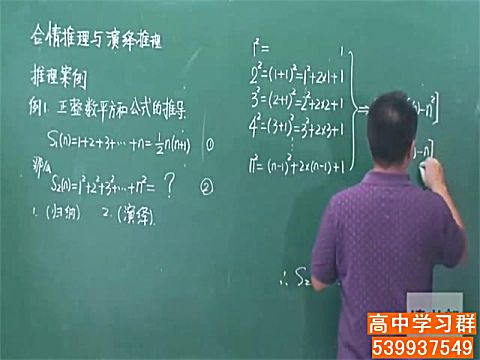 合情推理与演绎推理
推理案例
例1.正整数平方和公式的推导
S₁(n)=1+2+3+…+n=½n(n+1) ①
那么
S₂(n)=1²+2²+3²+…+n²= ? ②
1.(归纳) 2.(演绎).
1²= 1
2²=(1+1)²=1²+2×1+1
3²=(2+1)²=2²+2×2+1
4²=(3+1)²=3²+2×3+1
n²=(n-1)²+2×(n-1)+1
⇒
)-n²]
)-n]
∴ S₂
高中学习群
539937549